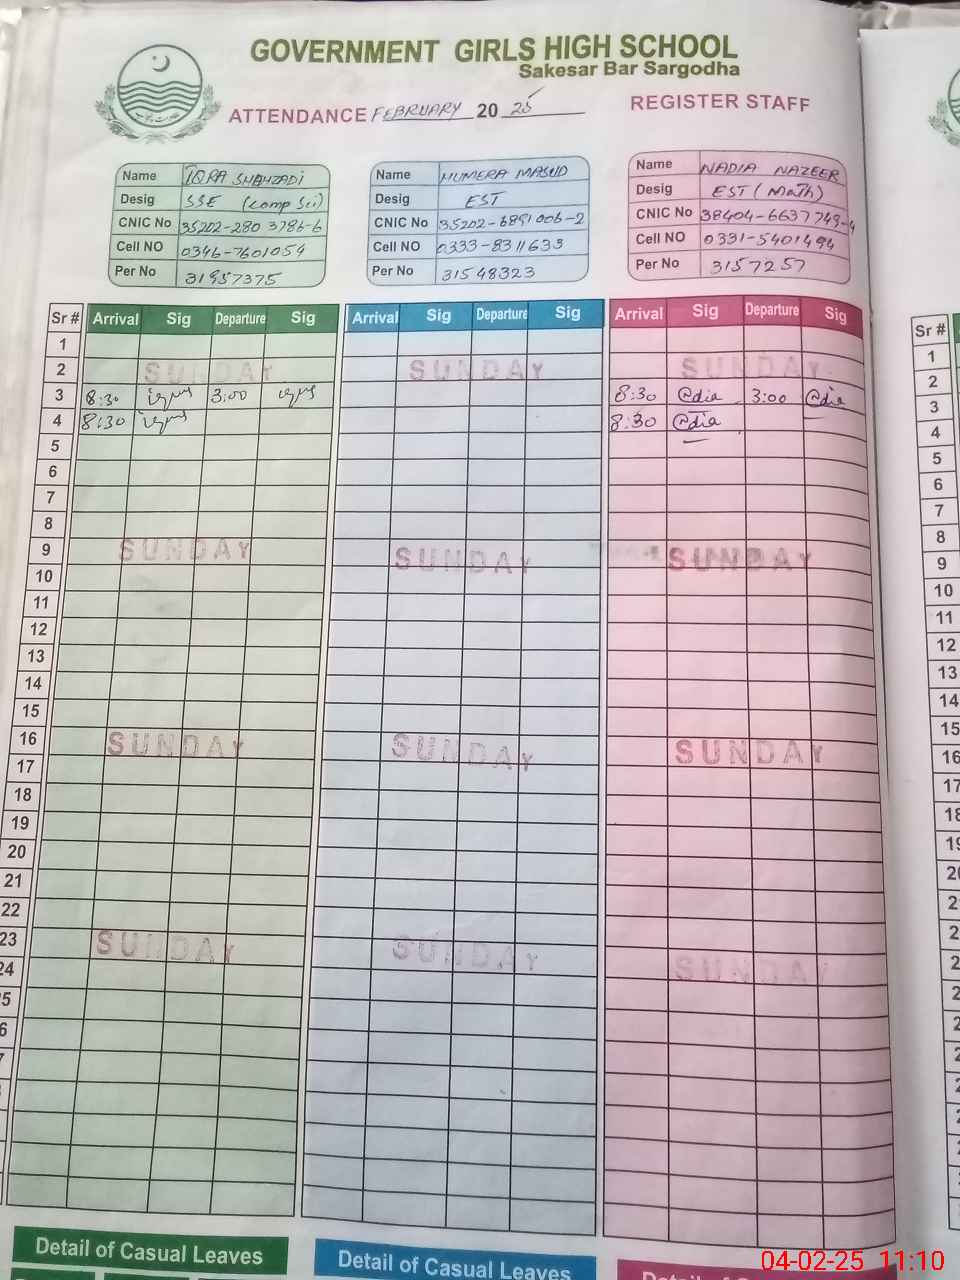 GOVERNMENT GIRLS HIGH SCHOOL
Sakesar Bar Sargodha
ATTENDANCE FEBRUARY 20 25 REGISTER STAFF
Name IQRA SHAHZADI
Desig SSE (Comp Sci)
CNIC No 35202-280 3786-6
Cell NO 0346-7601054
Per No 31957375
Name HUMERA MASUD
Desig EST
CNIC No 35202-6891006-2
Cell NO 0333-8311633
Per No 31548323
Name NADIA NAZEER
Desig EST (Math)
CNIC No 38404-6637749-4
Cell NO 0331-5401494
Per No 3157257
Sr # Arrival Sig Departure Sig Arrival Sig Departure Sig Arrival Sig Departure Sig Sr #
1 1
2 SUNDAY SUNDAY SUNDAY 2
3 8:30 3:00 8:30 @dia 3:00 @dia 3
4 8:30 8:30 @dia 4
5 5
6 6
7 7
8 8
9 SUNDAY SUNDAY SUNDAY 9
10 10
11 11
12 12
13 13
14 14
15 15
16 SUNDAY SUNDAY SUNDAY 16
17
18
19
20
21
22
23 SUNDAY SUNDAY SUNDAY
24
Detail of Casual Leaves Detail of Casual Leaves
04-02-25 11:10